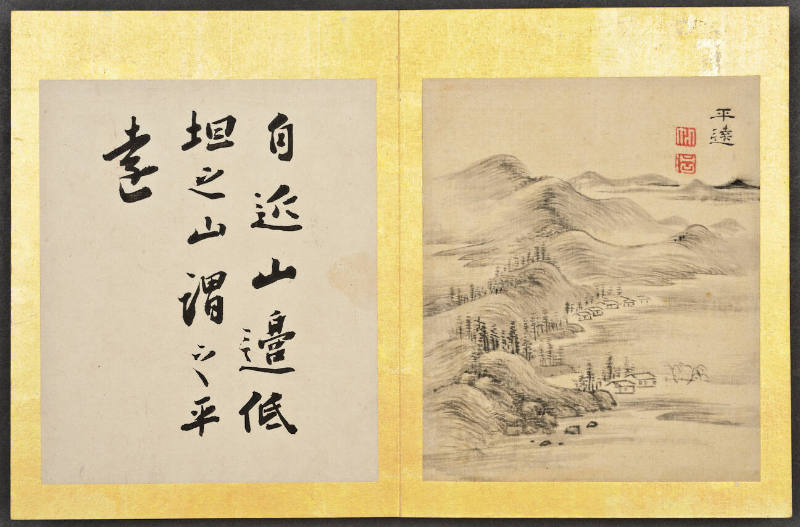 平遠
自近山邊低
坦之山謂之平
遠